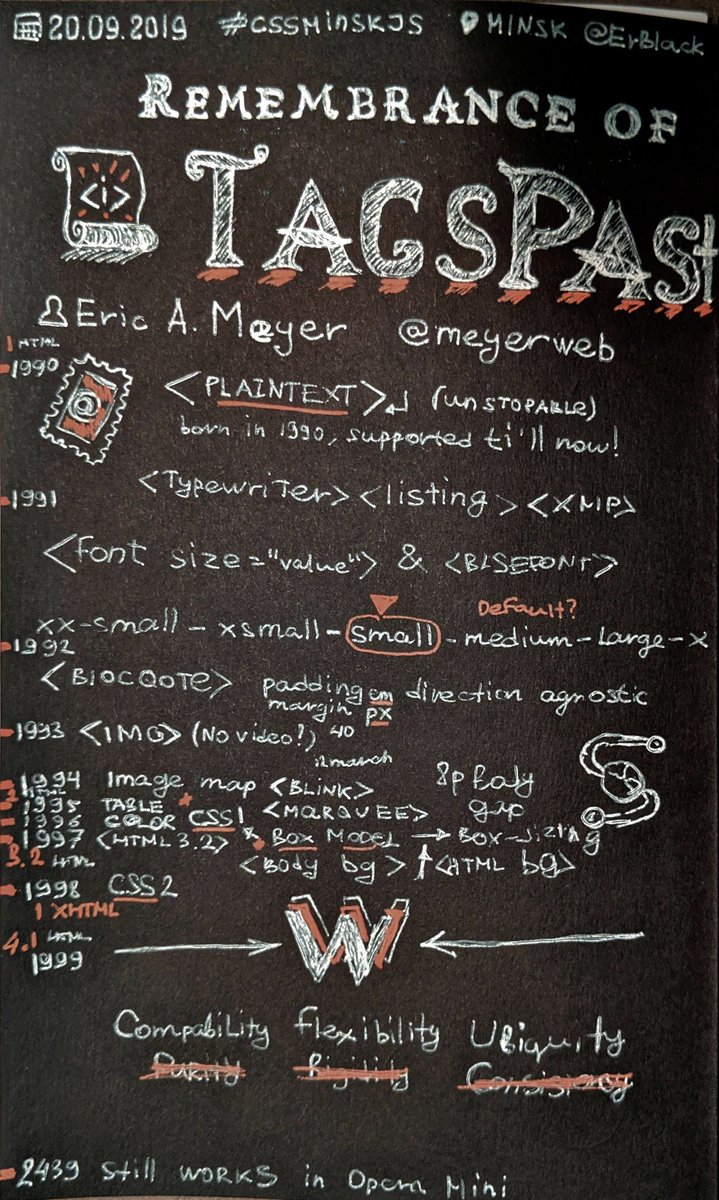 20.09.2019 #CSSMinskJS MINSK @ErBlack
REMEMBRANCE OF
<i> TAGSPAST
Eric A. Meyer @meyerweb
1 HTML
1990
@ <PLAINTEXT> (UNSTOPABLE)
born in 1990, supported ti'll now!
1991 <Typewriter> <listing> <XMP>
<font size="value"> & <BASEFONT>
Default?
xx-small - xsmall - small - medium - Large - X
1992
<BLOCQOTE> padding em direction agnostic
margin px
1993 <IMG> (No video!) 40
12 march
1994 Image map <BLINK> 8p Body
1995 TABLE <MARQUEE> gap
1996 COLOR CSS1
1997 <HTML 3.2> BOX MODEL → BOX-Sizing
3.2 HTML <Body bg> ↑ <HTML bg>
1998 CSS2
1 XHTML
4.1 HTML
1999
W
Compability Flexibility Ubiquity
Purity Rigidity Consisency
2439 Still WORKS in Opera Mini